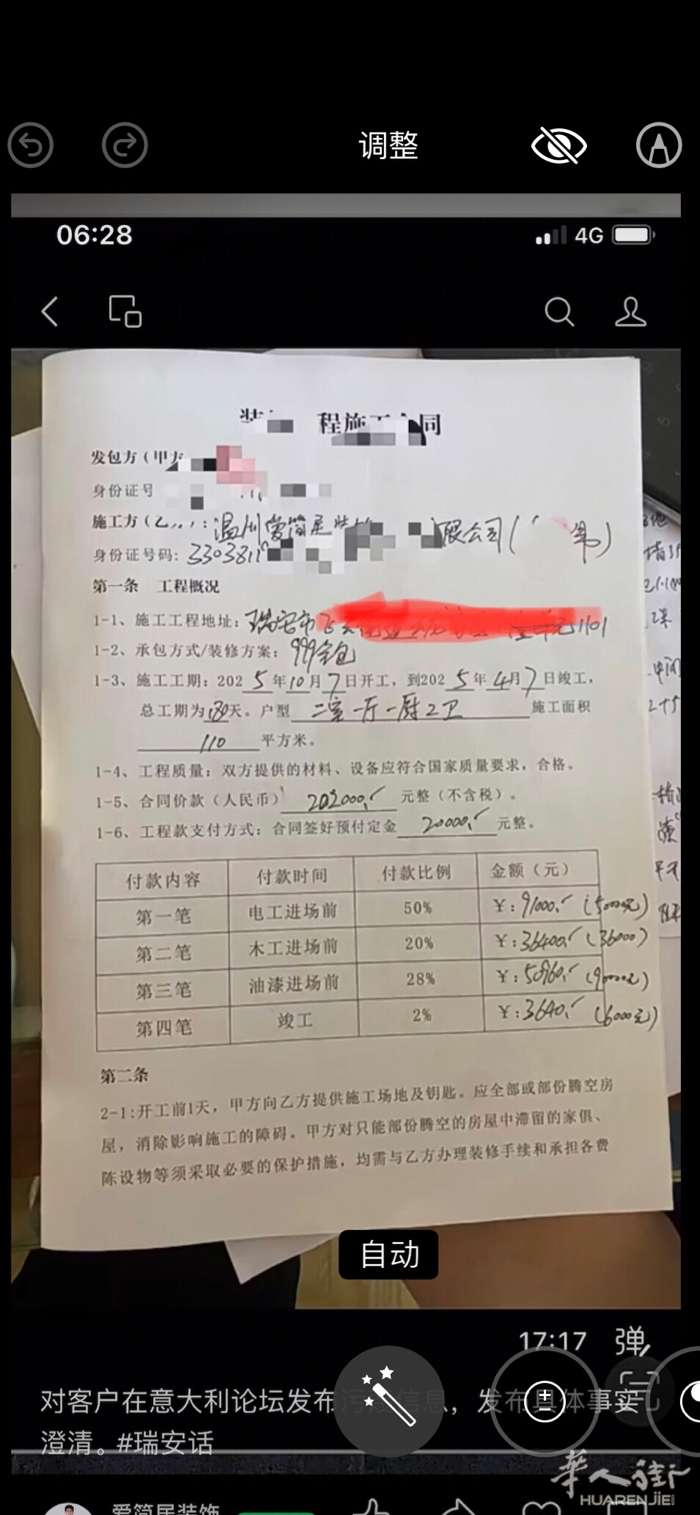 调整
06:28
4G
程施工合同
发包方（甲方
身份证号
施工方（乙方）：温州爱简居装 限公司（
身份证号码：3303811
第一条 工程概况
1-1、施工工程地址：瑞安市 1101
1-2、承包方式/装修方案：999全包
1-3、施工工期：2025年10月7日开工，到2025年4月7日竣工，
总工期为180天。户型 二室一厅一厨2卫 施工面积
110 平方米。
1-4、工程质量：双方提供的材料、设备应符合国家质量要求，合格。
1-5、合同价款（人民币）202000 元整（不含税）。
1-6、工程款支付方式：合同签好预付定金 20000 元整。
付款内容 付款时间 付款比例 金额（元）
第一笔 电工进场前 50% ￥：91000
第二笔 木工进场前 20% ￥：36400 (36000)
第三笔 油漆进场前 28% ￥：50960
第四笔 竣工 2% ￥：3640 (6000元)
第二条
2-1：开工前1天，甲方向乙方提供施工场地及钥匙。应全部或部份腾空房
屋，消除影响施工的障碍。甲方对只能部份腾空的房屋中滞留的家俱、
陈设物等须采取必要的保护措施，均需与乙方办理装修手续和承担各费
自动
17:17
弹
对客户在意大利论坛发布污 信息，发布具体事实
澄清。#瑞安话
爱简居装饰
华人街
HUARENJIE